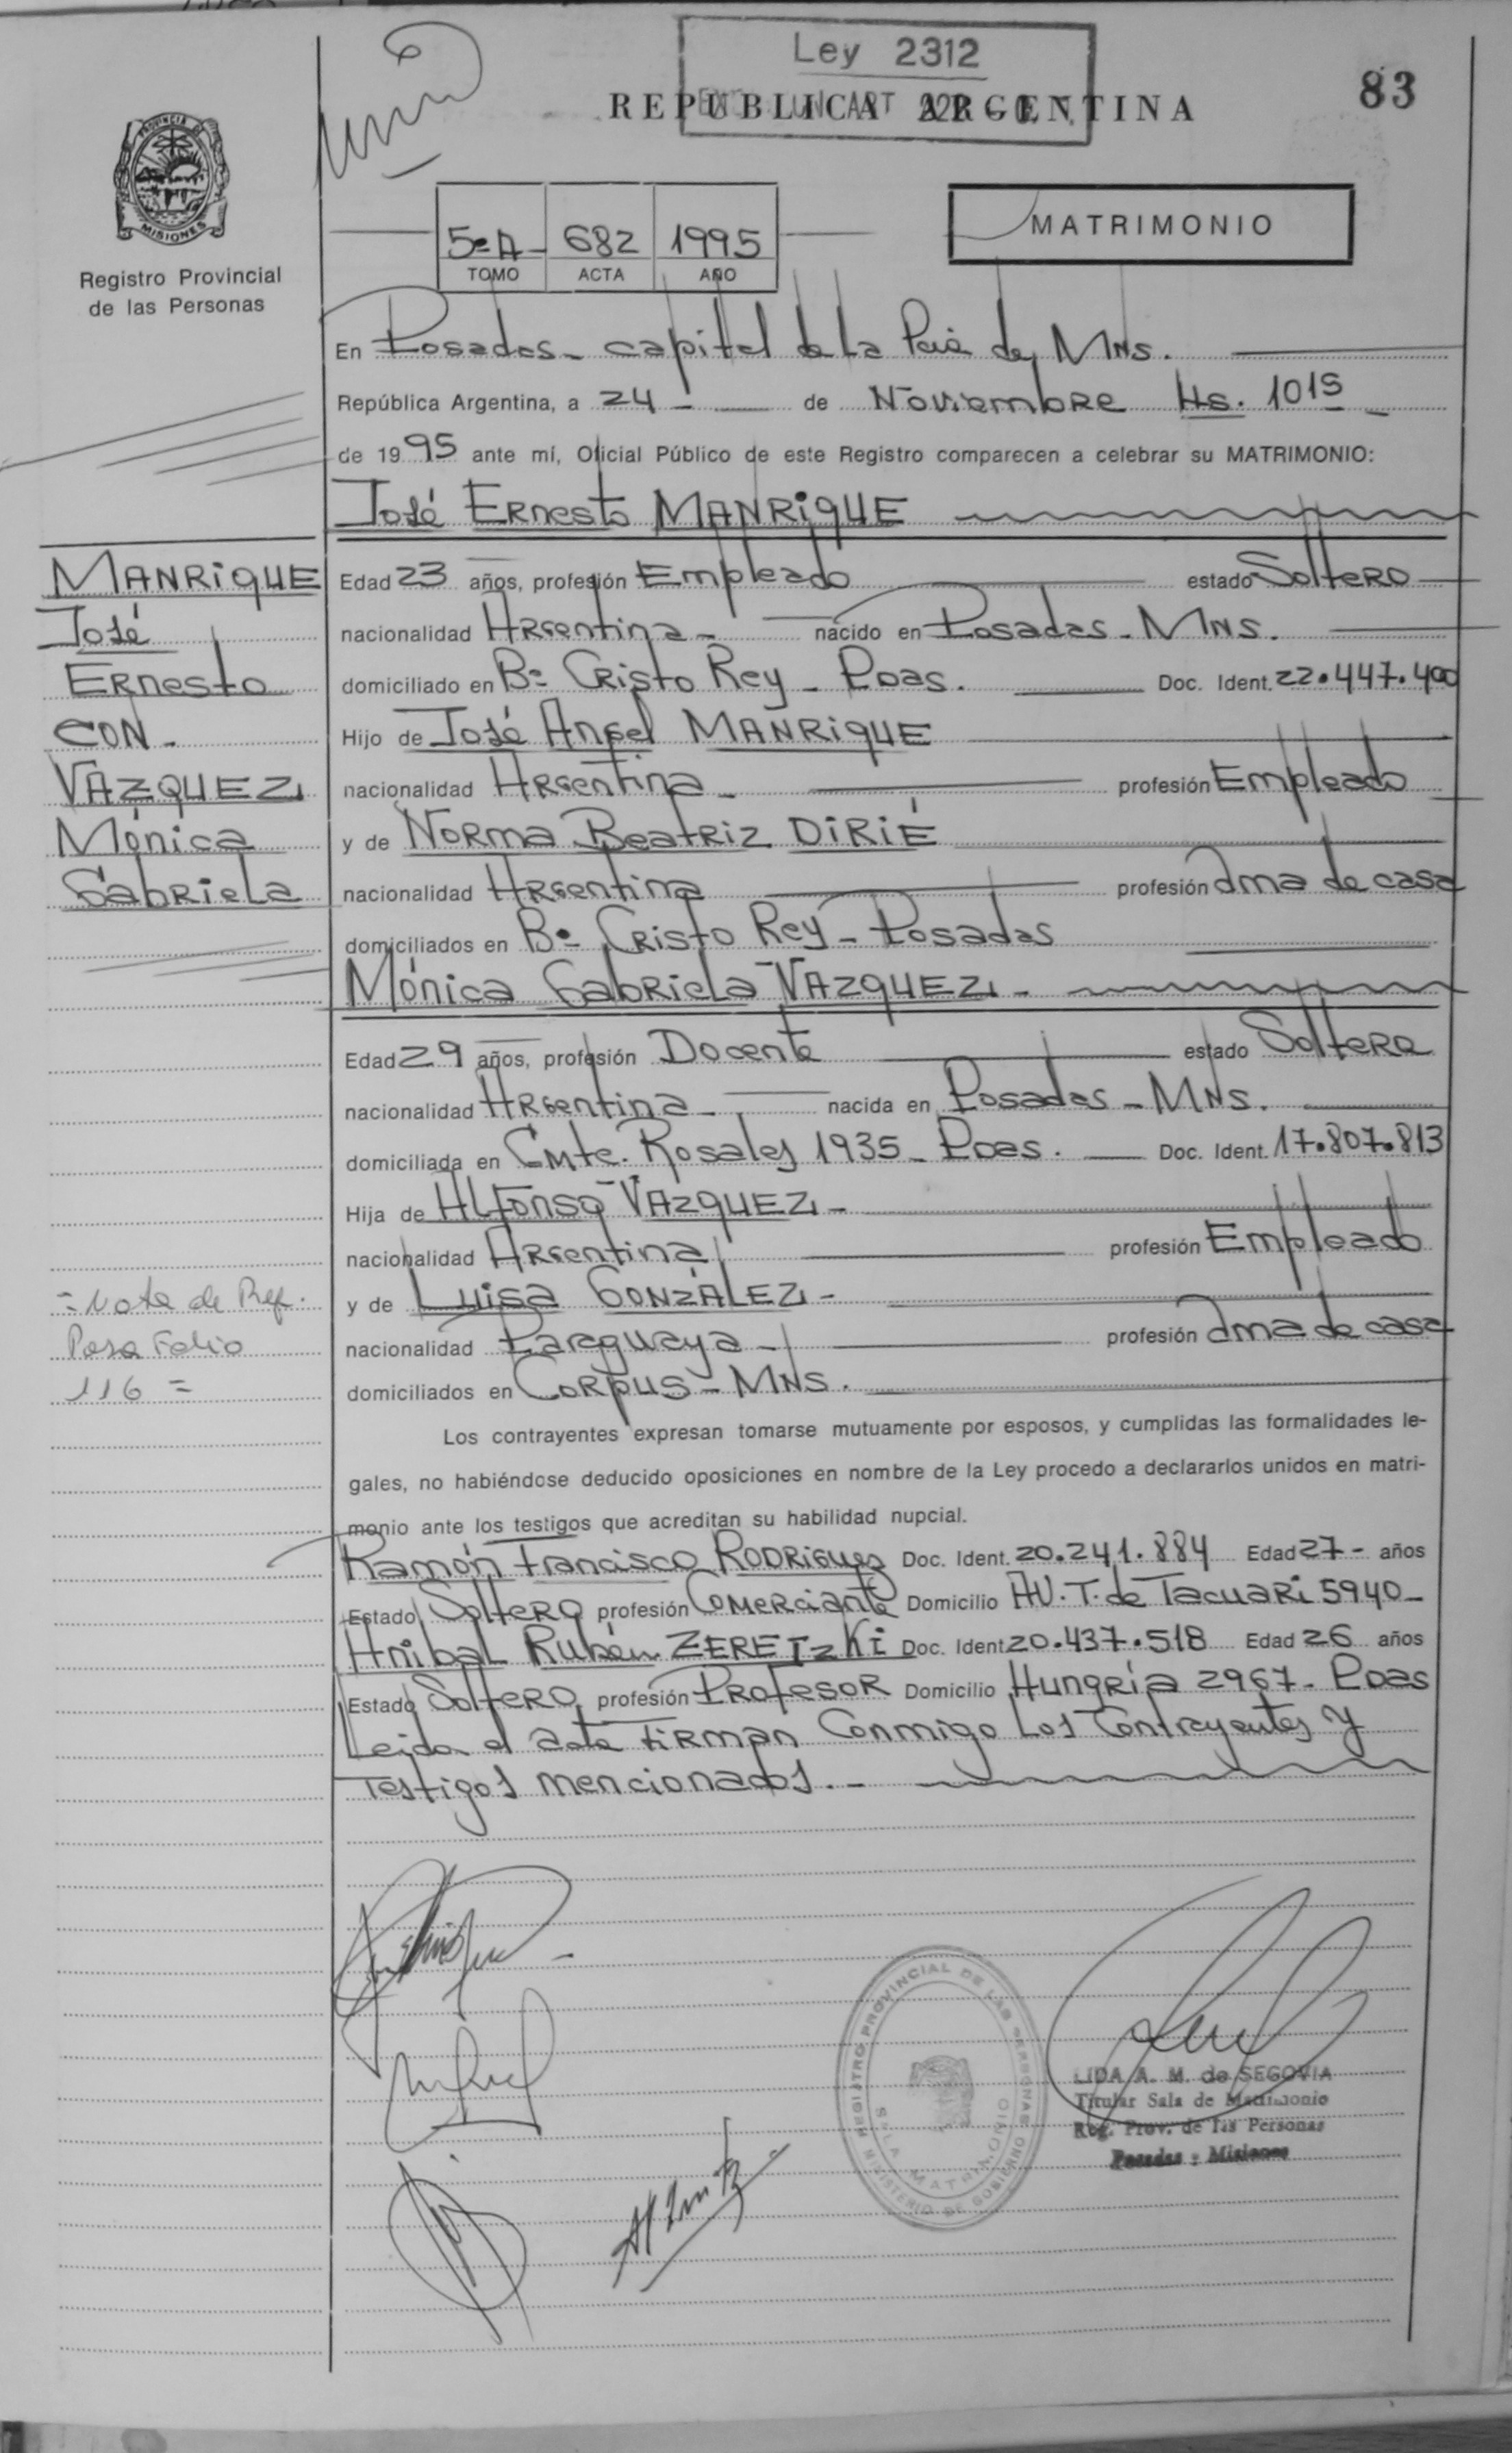 Ley 2312
83
REPUBLICA ARGENTINA
MATRIMONIO
5º A - 682 1995
TOMO ACTA AÑO
PROVINCIA DE MISIONES
Registro Provincial
de las Personas
En Posadas - capital de la Pcia de MNS.
República Argentina, a 24 - de Noviembre Hs. 1015 -
de 1995 ante mí, Oficial Público de este Registro comparecen a celebrar su MATRIMONIO:
José Ernesto MANRIQUE
MANRIQUE
José
Ernesto
CON -
VAZQUEZ
Mónica
Gabriela
Edad 23 años, profesión Empleado estado Soltero
nacionalidad Argentina - nacido en Posadas - MNS.
domiciliado en Bº Cristo Rey - Pdas. Doc. Ident. 22.447.400
Hijo de José Angel MANRIQUE
nacionalidad Argentina - profesión Empleado
y de Norma Beatriz DIRIÉ
nacionalidad Argentina profesión ama de casa
domiciliados en Bº Cristo Rey - Posadas
Mónica Gabriela VAZQUEZ -
Edad 29 años, profesión Docente estado Soltera
nacionalidad Argentina - nacida en Posadas - MNS.
domiciliada en Cmte. Rosales 1935 - Pdas. Doc. Ident. 17.807.813
Hija de Alfonso VAZQUEZ -
nacionalidad Argentina profesión Empleado
y de Luisa GONZÁLEZ -
nacionalidad Paraguaya - profesión ama de casa
domiciliados en Corpus - MNS.
= Nota de Ref.
Pasa Folio
116 =
Los contrayentes expresan tomarse mutuamente por esposos, y cumplidas las formalidades le-
gales, no habiéndose deducido oposiciones en nombre de la Ley procedo a declararlos unidos en matri-
monio ante los testigos que acreditan su habilidad nupcial.
Ramón Francisco RODRIGUEZ Doc. Ident. 20.241.884 Edad 27 - años
Estado Soltero profesión Comerciante Domicilio AV. T. de Tacuari 5940 -
Anibal Rubén ZERETZKI Doc. Ident 20.437.518 Edad 26 años
Estado Soltero profesión Profesor Domicilio Hungría 2967 - Pdas
Leida el acta firman Conmigo Los Contrayentes y
Testigos mencionados. -
REGISTRO PROVINCIAL DE LAS PERSONAS
SALA MATRIMONIO
MINISTERIO DE GOBIERNO
LIDA A. M. de SEGOVIA
Titular Sala de Matrimonio
Reg. Prov. de las Personas
Posadas - Misiones